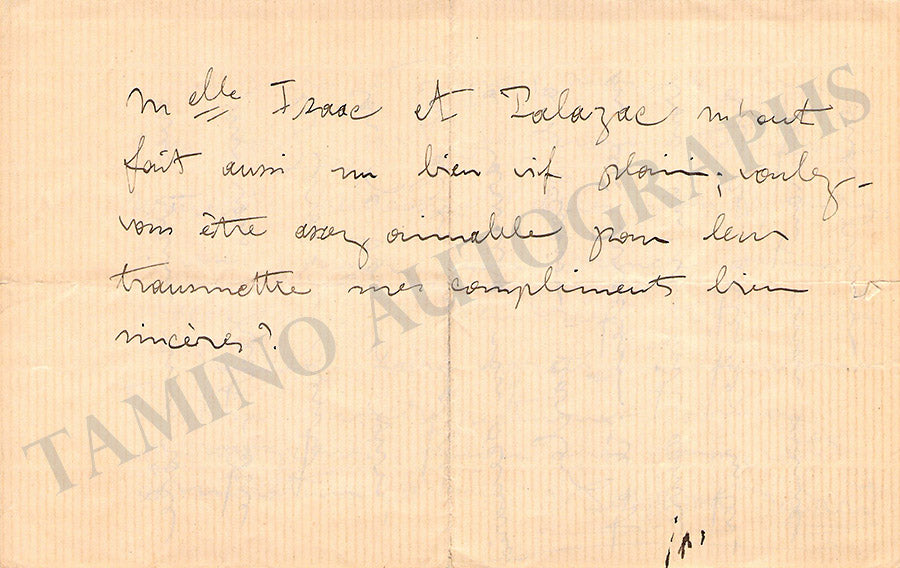 Melle Isaac et Talazac m'ont
fait aussi un bien vif plaisir; voulez-
vous être assez aimable pour leur
transmettre mes compliments bien
sincères?
TAMINO AUTOGRAPHS